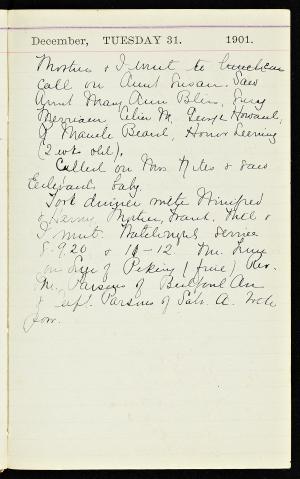 December, TUESDAY 31. 1901.
Mother & I went to luncheon
call on Aunt Susan. Saw
Aunt Mary Ann Bliss, Susy
Merriam Celia M. George Howard,
& Maude Beard, Honor
(2 wks old).
Called on Mrs & saw
baby.
Took dinner with Winifred
& Harry Mother, Frank, &
I went. Watchnight service
8-9.20 & 10-12. Mr.
on Siege of Peking (fine) Rev.
Mr. Parsons of
& Capt. Parsons of Salv. A.